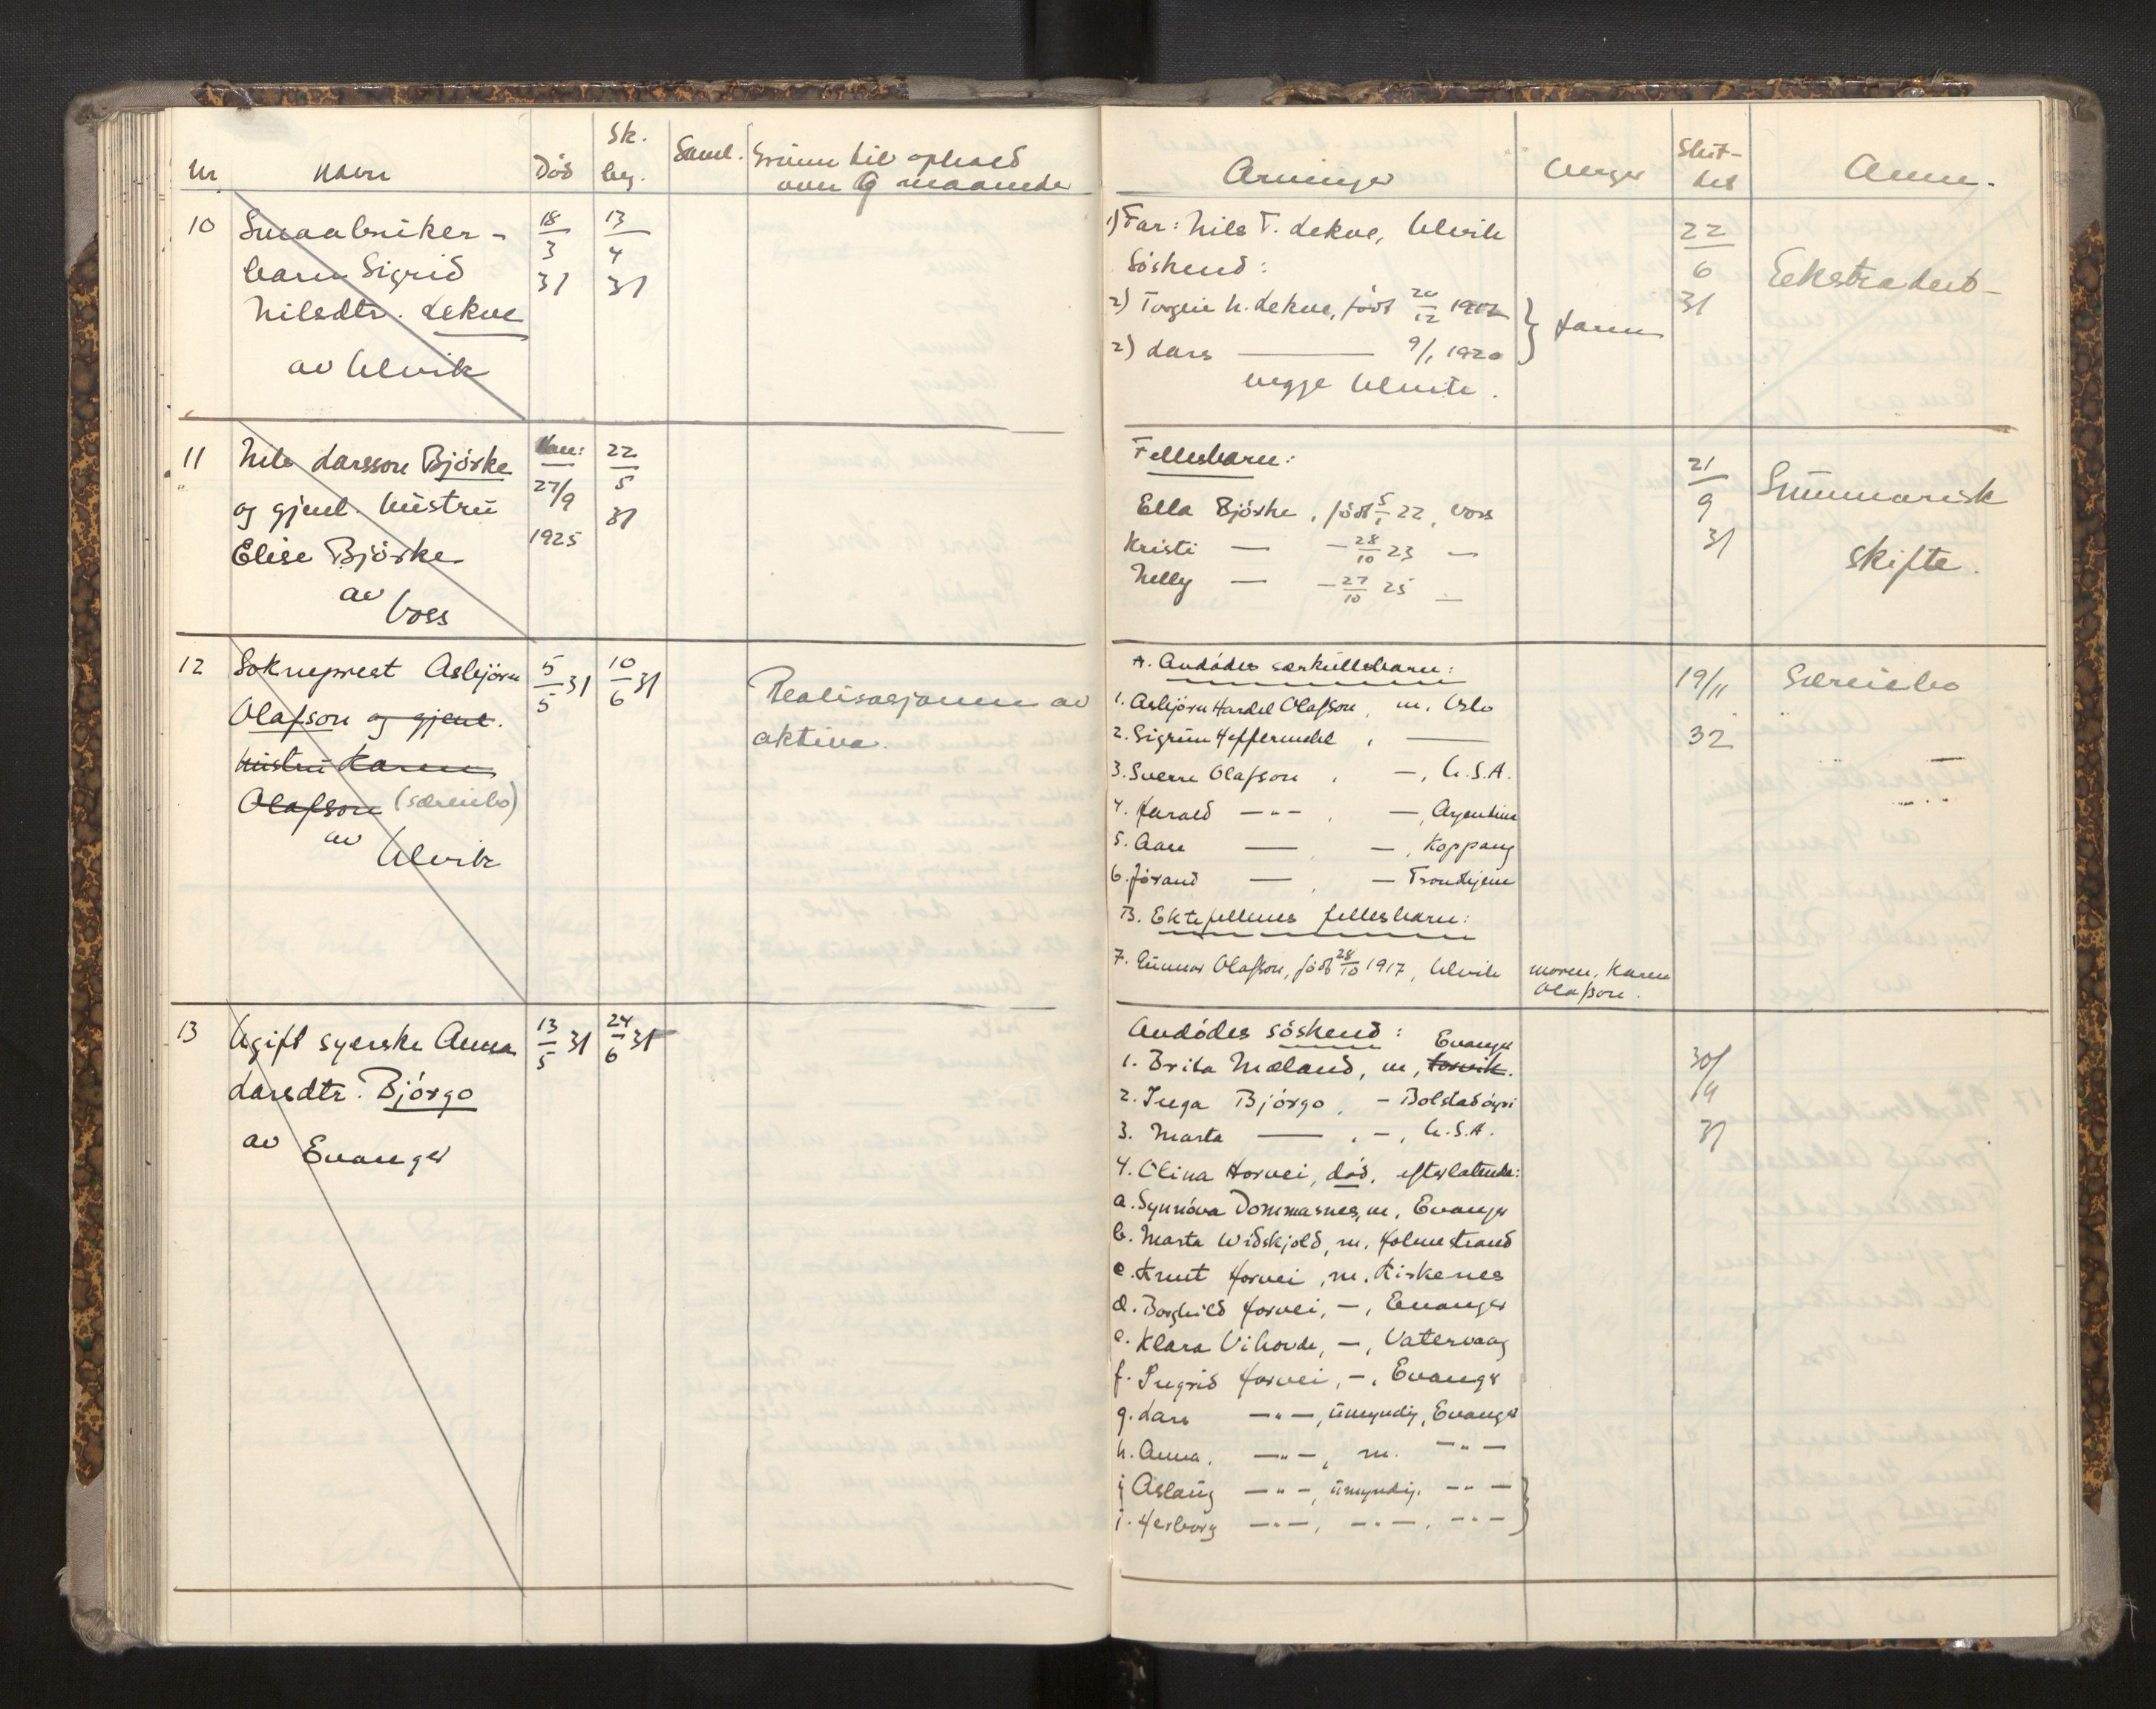 Nr Navn Død Sk. beg. Saml. Grunn til ophold over 9 maaneder
10 Smaabruker-
barn Sigrid
Nilsdtr. Lekve
av Ulvik
18/3 31
13/4 31
11 Nils Larsson Bjørke
og gjenl. hustru
Elise Bjørke
av Voss
27/9
1925
22/5 31
12 Sokneprest Asbjørn
Olafson og gjenl.
hustru Karen
Olafson (særeiebo)
av Ulvik
5/5 31
10/6 31
Realisasjonen av
aktiva.
13 Ugift syerske Anna
Larsdtr. Bjørgo
av Evanger
13/5 31
24/6 31
Arvinger Verger Slut-tet Anm.
1) Far: Nils T. Lekve, Ulvik
Søskend:
2) Torgeir N. Lekve, født 20/12 1912
2) Lars — 9/1 1920
begge Ulvik.
faren
22/6 31
Ekstradert
Fellesbarn:
Ella Bjørke, født 5/1 22, Voss
Kristi — — 28/10 23 —
Nelly — — 27/10 25 —
21/9 31
Summarisk
skifte.
A. Avdødes særkullsbarn:
1. Asbjørn Hardel Olafson, m, Oslo
2. Sigrun Heffermehl, —
3. Sverre Olafson, —, U.S.A.
4. Harald —"—, —, Argentina
5. Aase —, —, Koppang
6. Jørand —, — Trondhjem
B. Ektefellenes fellesbarn:
7. Gunnar Olafson, født 28/10 1917, Ulvik
moren, Karen
Olafson.
19/11
32
Særeiebo
Avdødes søskend:
Evanger
1. Brita Mæland, m,
2. Inga Bjørgo, — Bolstadøyri
3. Marta —, —, U.S.A.
4. Olina Horvei, død, efterlatende:
a. Synnøva Dommasnes, m, Evanger
b. Marta Widskjold, m. Holmestrand
c. Knut Horvei, m. Kirkenes
d. Borghild Horvei, —, Evanger
e. Klara Vihovde, —, Vatervaag
f. Ingrid Horvei, —, Evanger
g. Lars —"—, umyndig, Evanger
h. Anna, —"—, m. —"—
i Aslaug —"—, umyndig. —"—
j. Herborg —"—, —"—, —"—
30/
31